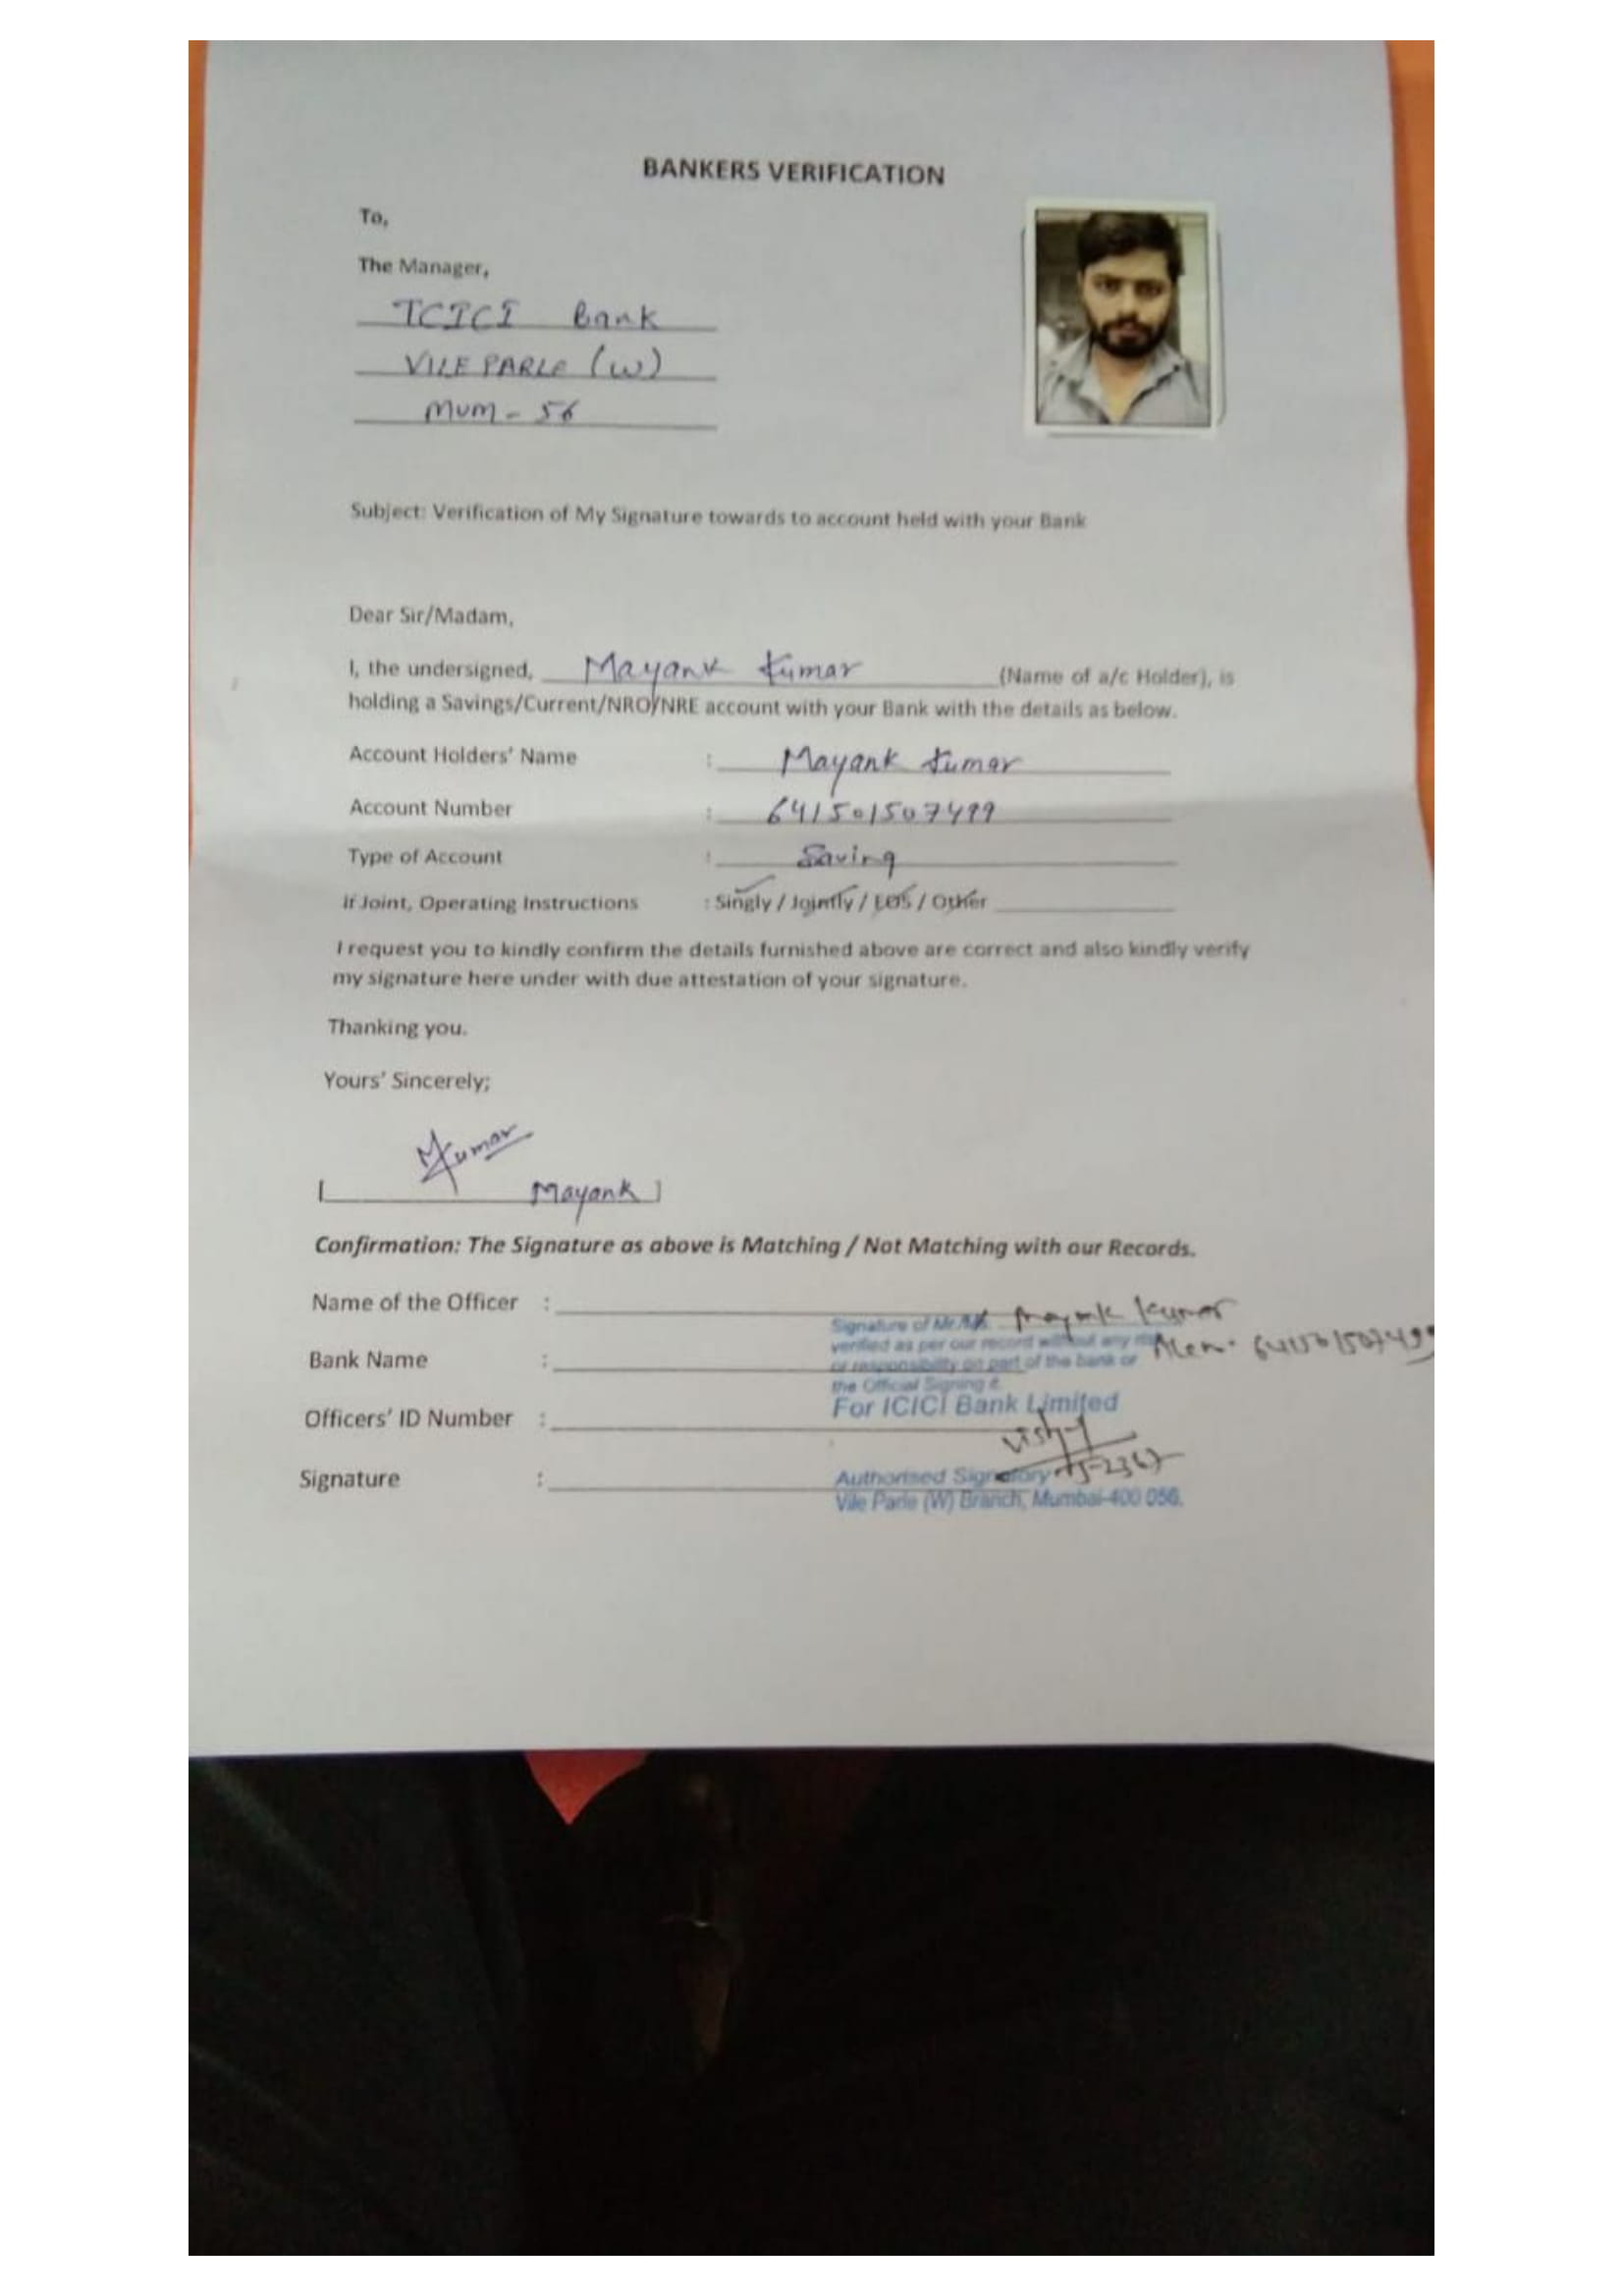 BANKERS VERIFICATION
To,
The Manager,
ICICI Bank
VILE PARLE (W)
MUM - 56
Subject: Verification of My Signature towards to account held with your Bank
Dear Sir/Madam,
I, the undersigned, Mayank Kumar (Name of a/c Holder), is
holding a Savings/Current/NRO/NRE account with your Bank with the details as below.
Account Holders' Name : Mayank Kumar
Account Number : 641501507499
Type of Account : Saving
If Joint, Operating Instructions : Singly / Jointly / EOS / Other
I request you to kindly confirm the details furnished above are correct and also kindly verify
my signature here under with due attestation of your signature.
Thanking you.
Yours' Sincerely;
MKumar
[ Mayank ]
Confirmation: The Signature as above is Matching / Not Matching with our Records.
Name of the Officer :
Signature of Mr./Ms. Mayank Kumar
verified as per our record without any
Bank Name :
641501507499
or responsibility on part of the bank or
the Official Signing it.
For ICICI Bank Limited
Officers' ID Number :
Signature :
Authorised Signatory
Vile Parle (W) Branch, Mumbai-400 056.